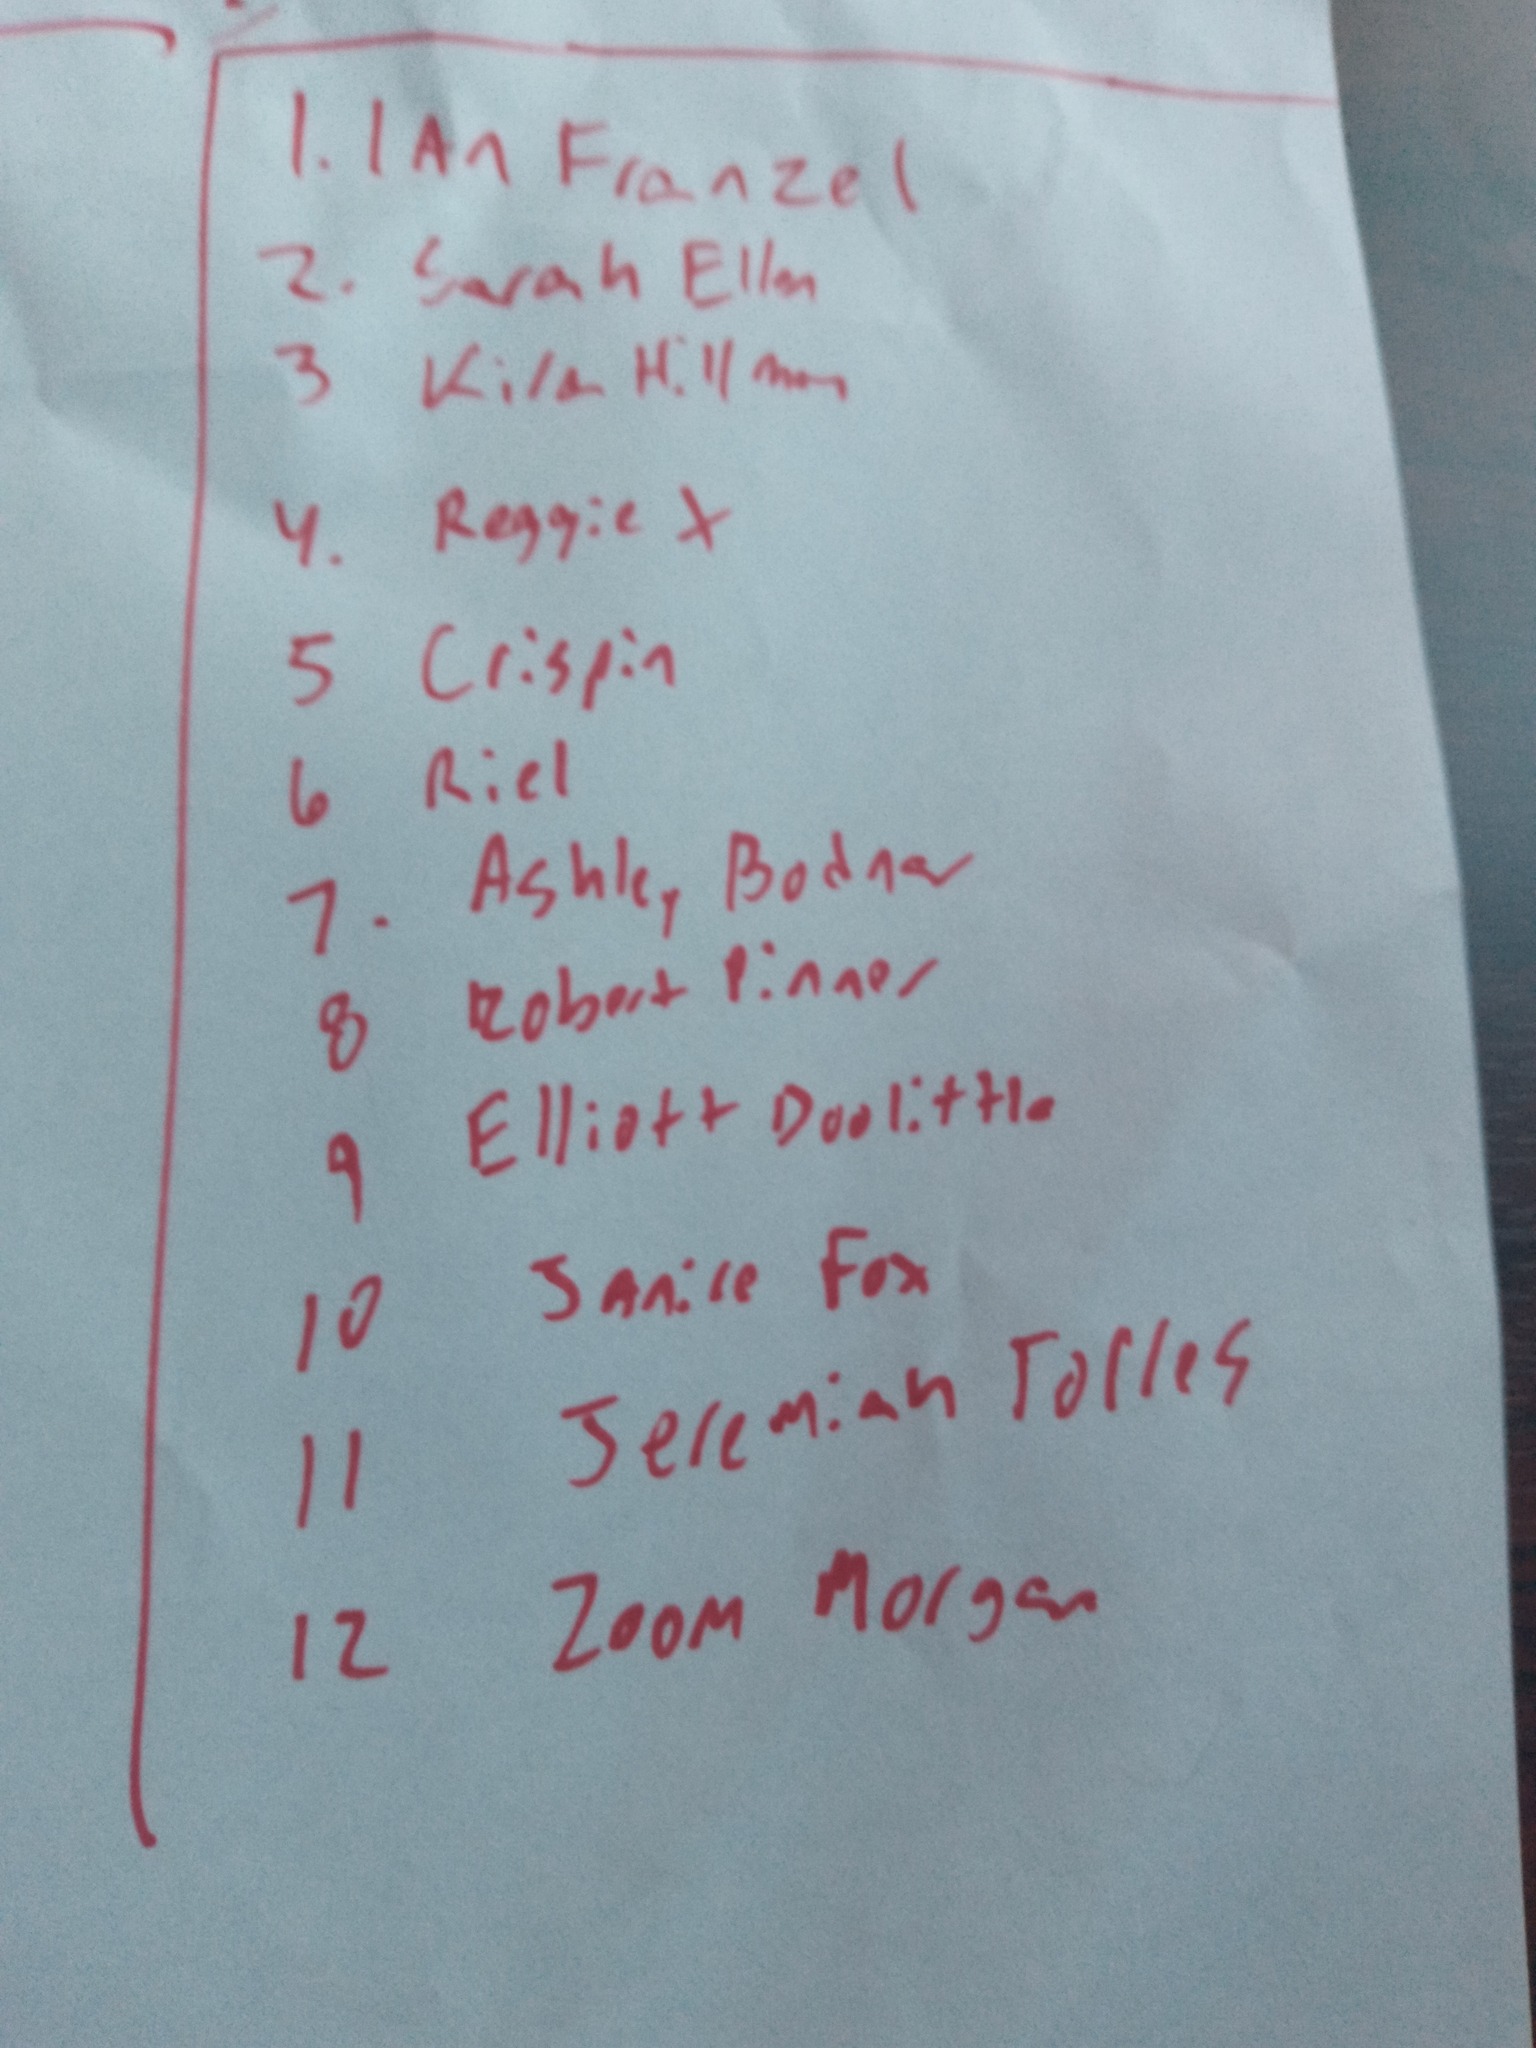 1. IAn Franzel
2. Sarah Ellen
3 Hillman
4. Reggie X
5 Crispin
6 Riel
7. Ashley Bodnar
8 Robert Pinner
9 Elliott Doolittle
10 Janice Fox
11 Jeremiah Torres
12 Zoom Morgan